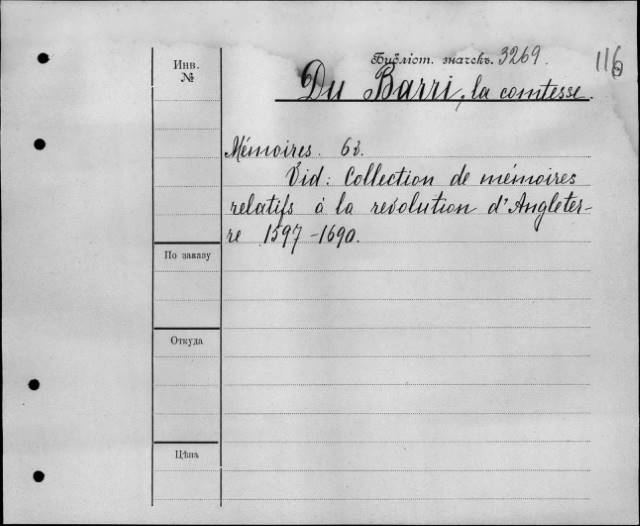 Библіот. значекъ. 3269. 116
Инв. №
Du Barri, la comtesse.
Mémoires. 6 з.
Vid: Collection de mémoires
relatifs à la révolution d'Angleter-
re 1597-1690.
По заказу
Откуда
Цѣна